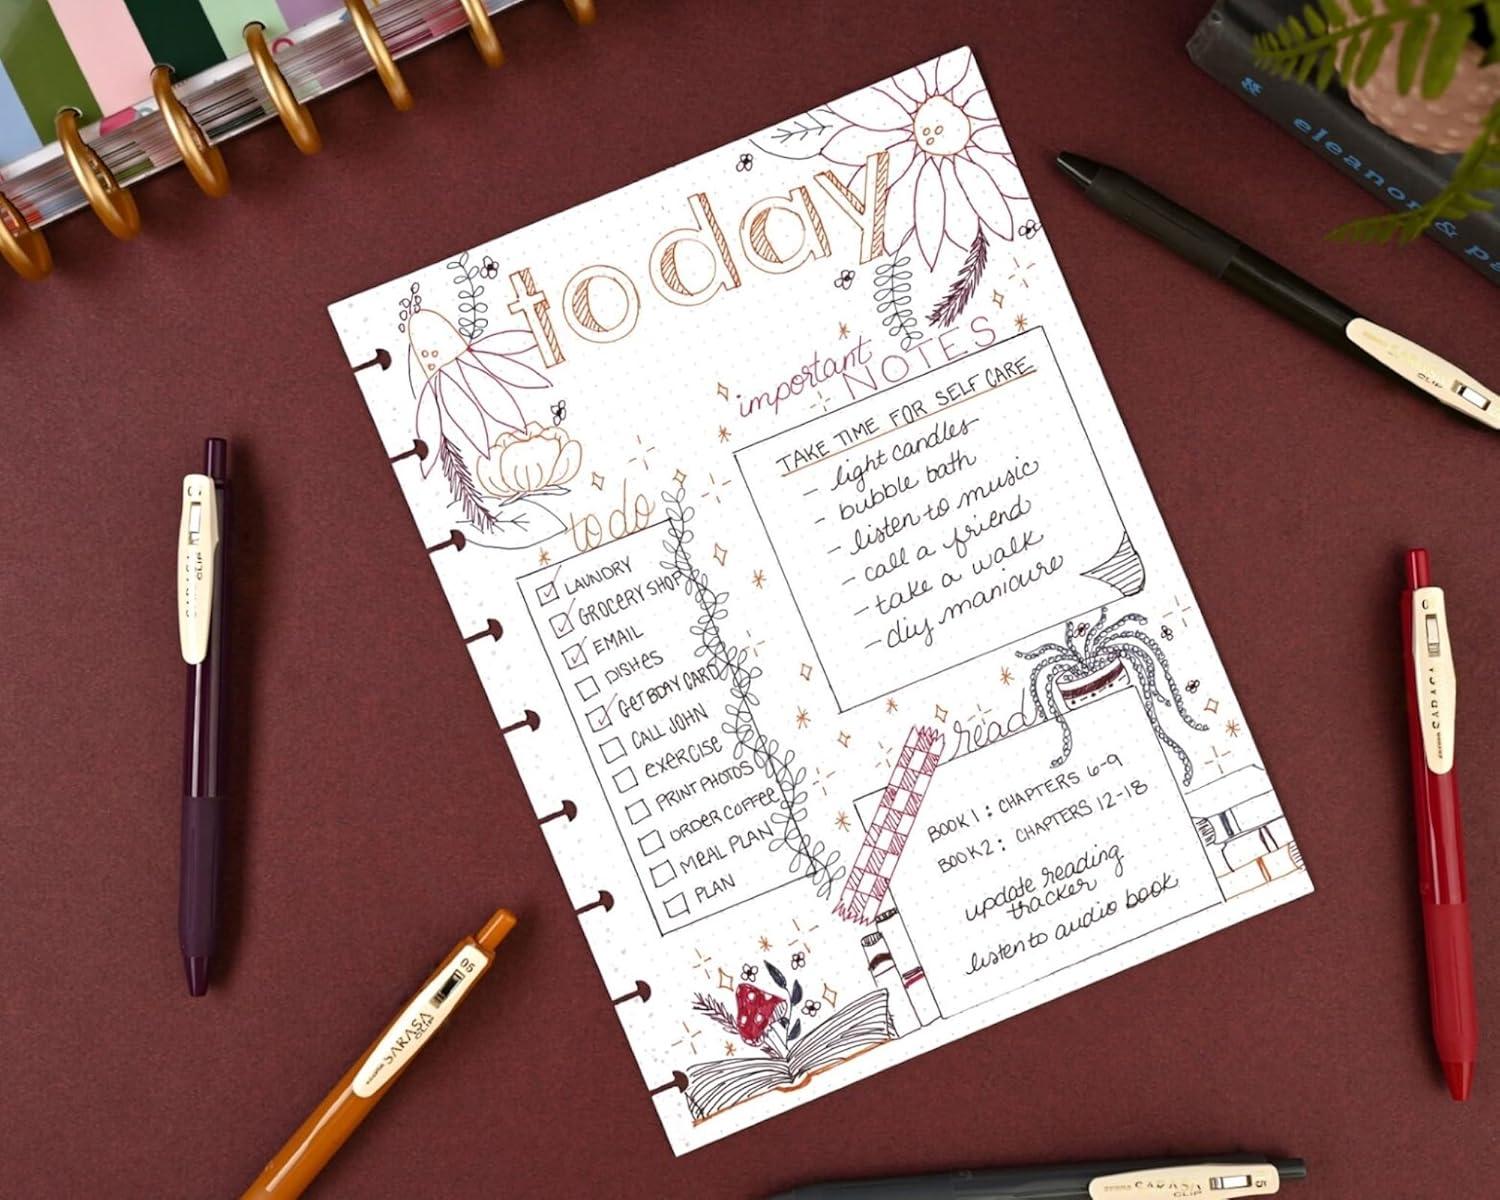 today
important
NOTES
TAKE TIME FOR SELF CARE
- light candles
- bubble bath
- listen to music
- call a friend
- take a walk
- diy manicure
to do
LAUNDRY
GROCERY SHOP
EMAIL
DISHES
GET BDAY CARD
CALL JOHN
exercise
PRINT PHOTOS
ORDER COFFEE
MEAL PLAN
PLAN
read
BOOK 1: CHAPTERS 6-9
BOOK 2: CHAPTERS 12-18
update reading
tracker
listen to audio book
eleanor & pa
&
SARASA
CLIP
05
SARASA
CLIP
SARASA
SARASA
CLIP
5
CLIP